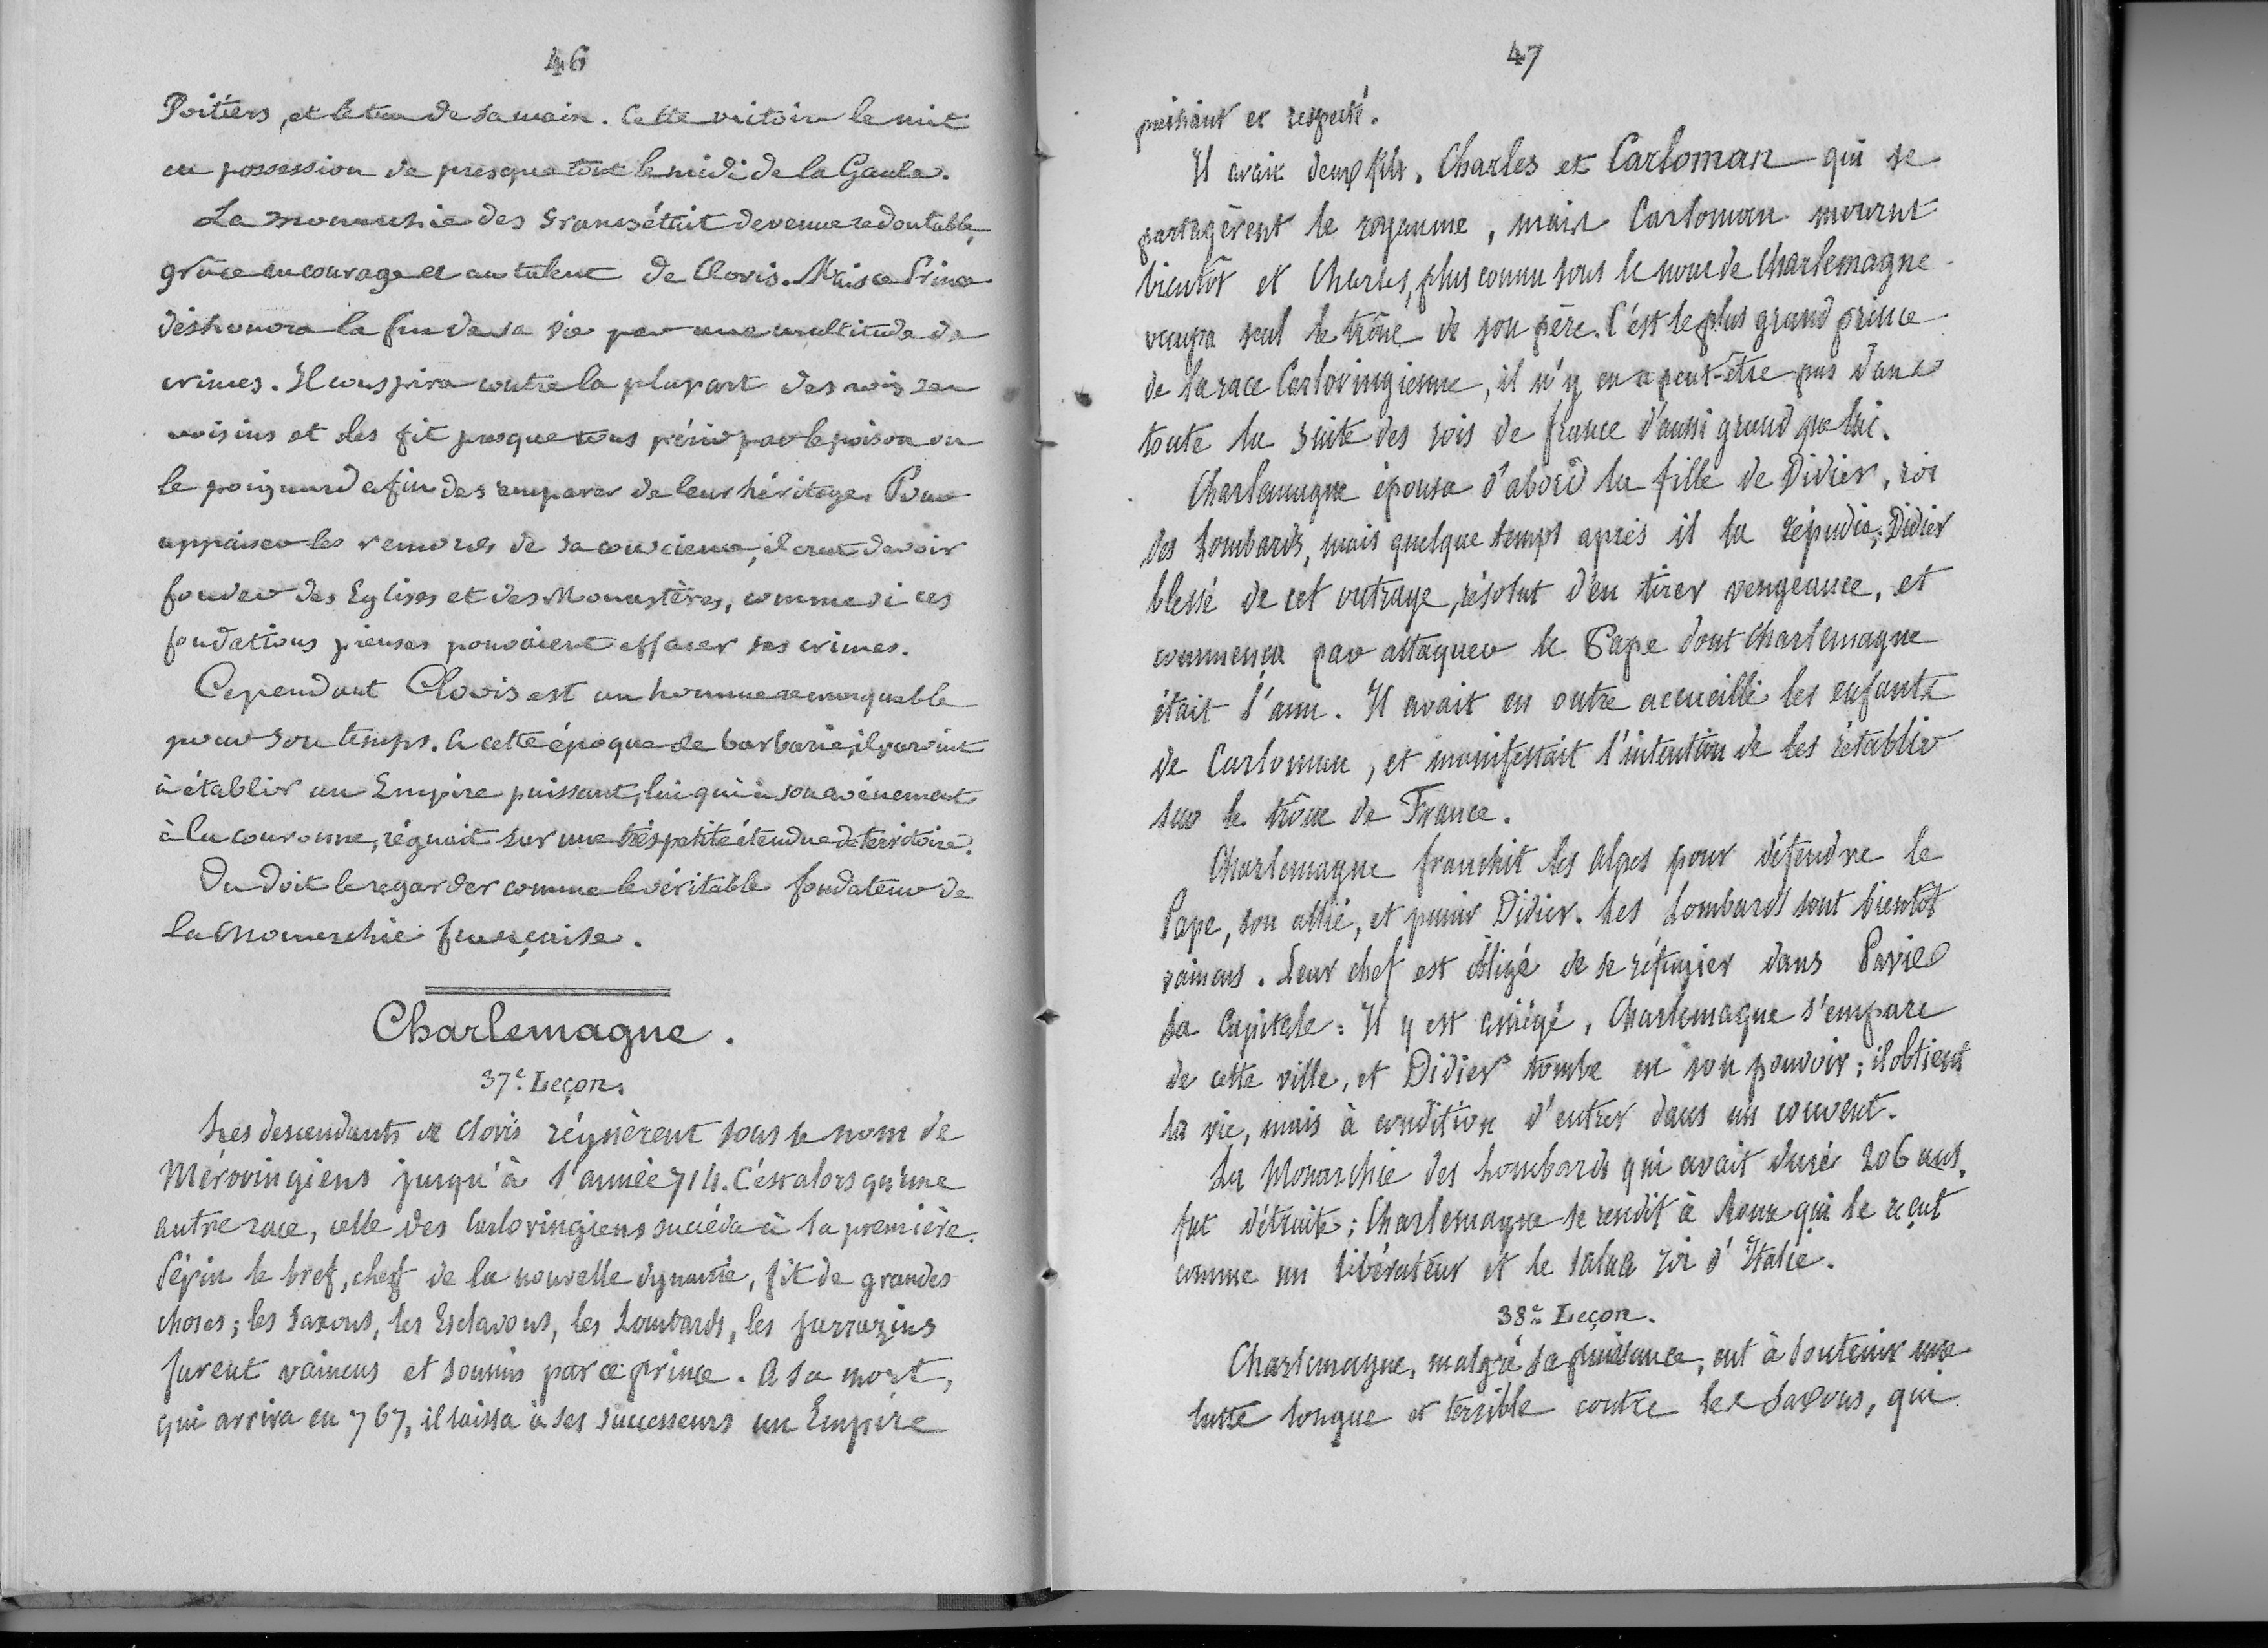 46
Poitiers, et le tua de sa main. Cette victoire le mit
en possession de presque tout le midi de la Gaule.
La monarchie des Francs était devenue redoutable,
grâce au courage et au talent de Clovis. Mais ce Prince
déshonora la fin de sa vie par une multitude de
crimes. Il conspira contre la plupart des rois ses
voisins et les fit presque tous périr par le poison ou
le poignard afin de s'emparer de leur héritage. Pour
appaiser les remords de sa conscience, il crut devoir
fonder des Eglises et des Monastères, comme si ces
fondations pieuses pouvaient effacer ses crimes.
Cependant Clovis est un homme remarquable
pour son temps. A cette époque de barbarie, il parvint
à établir un Empire puissant, lui qui à son avènement
à la couronne, régnait sur une très petite étendue de territoire.
On doit le regarder comme le véritable fondateur de
la Monarchie française.
Charlemagne.
37e. Leçon.
Les descendants de Clovis régnèrent sous le nom de
Mérovingiens jusqu'à l'année 714. C'est alors qu'une
autre race, celle des Carlovingiens succéda à la première.
Pépin le bref, chef de la nouvelle dynastie, fit de grandes
choses; les Saxons, les Esclavons, les Lombards, les sarrazins
furent vaincus et soumis par ce prince. A sa mort,
qui arriva en 767, il laissa à ses successeurs un Empire
47
puissant et respecté.
Il avait deux fils, Charles et Carloman qui se
partagèrent le royaume, mais Carloman mourut
bientôt et Charles, plus connu sous le nom de Charlemagne
occupa seul le trône de son père. C'est le plus grand prince
de la race Carlovingienne, il n'y en a peut-être pas dans
toute la suite des rois de france d'aussi grand que lui.
Charlemagne épousa d'abord la fille de Didier, roi
des Lombards, mais quelque temps après il la répudia; Didier
blessé de cet outrage, résolut d'en tirer vengeance, et
commença par attaquer le Pape dont Charlemagne
était l'ami. Il avait en outre accueilli les enfants
de Carloman, et manifestait l'intention de les rétablir
sur le trône de France.
Charlemagne franchit les Alpes pour défendre le
Pape, son allié, et punir Didier. Les Lombards sont bientôt
vaincus. Leur chef est obligé de se réfugier dans Pavie
sa Capitale: Il y est assiégé, Charlemagne s'empare
de cette ville, et Didier tombe en son pouvoir; il obtient
la vie, mais à condition d'entrer dans un couvent.
La Monarchie des Lombards qui avait duré 206 ans,
fut détruite; Charlemagne se rendit à Rome qui le reçut
comme un libérateur et le salua roi d'Italie.
38e. Leçon.
Charlemagne, malgré sa puissance, eut à soutenir une
lutte longue et terrible contre les Saxons, qui